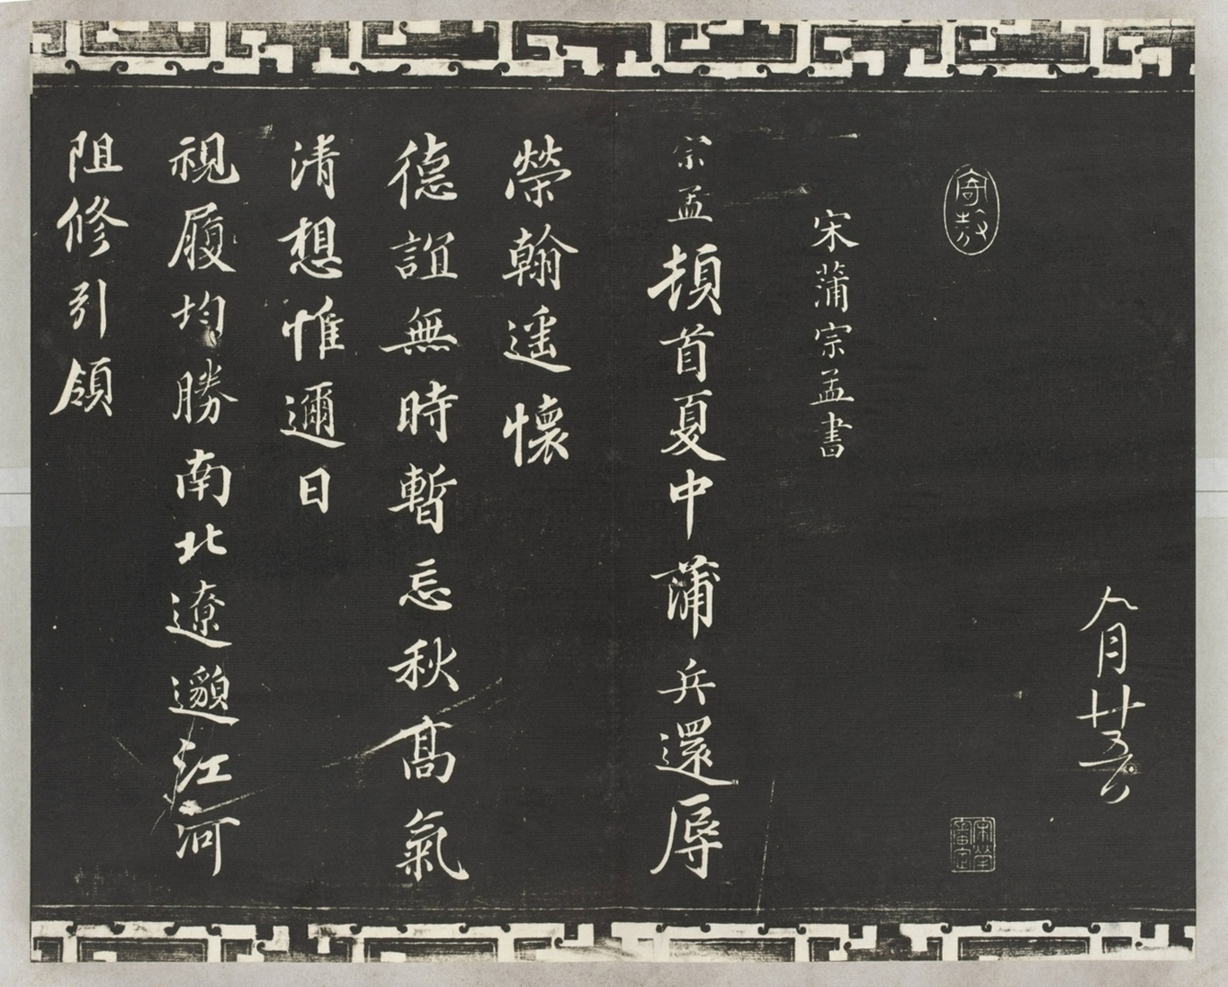 八月廿五日
宋蒲宗孟書
宗孟頓首夏中蒲兵還辱
榮翰遥懷
德誼無時暫忘秋高氣
清想惟邇日
視履均勝南北遼邈江河
阻修引領